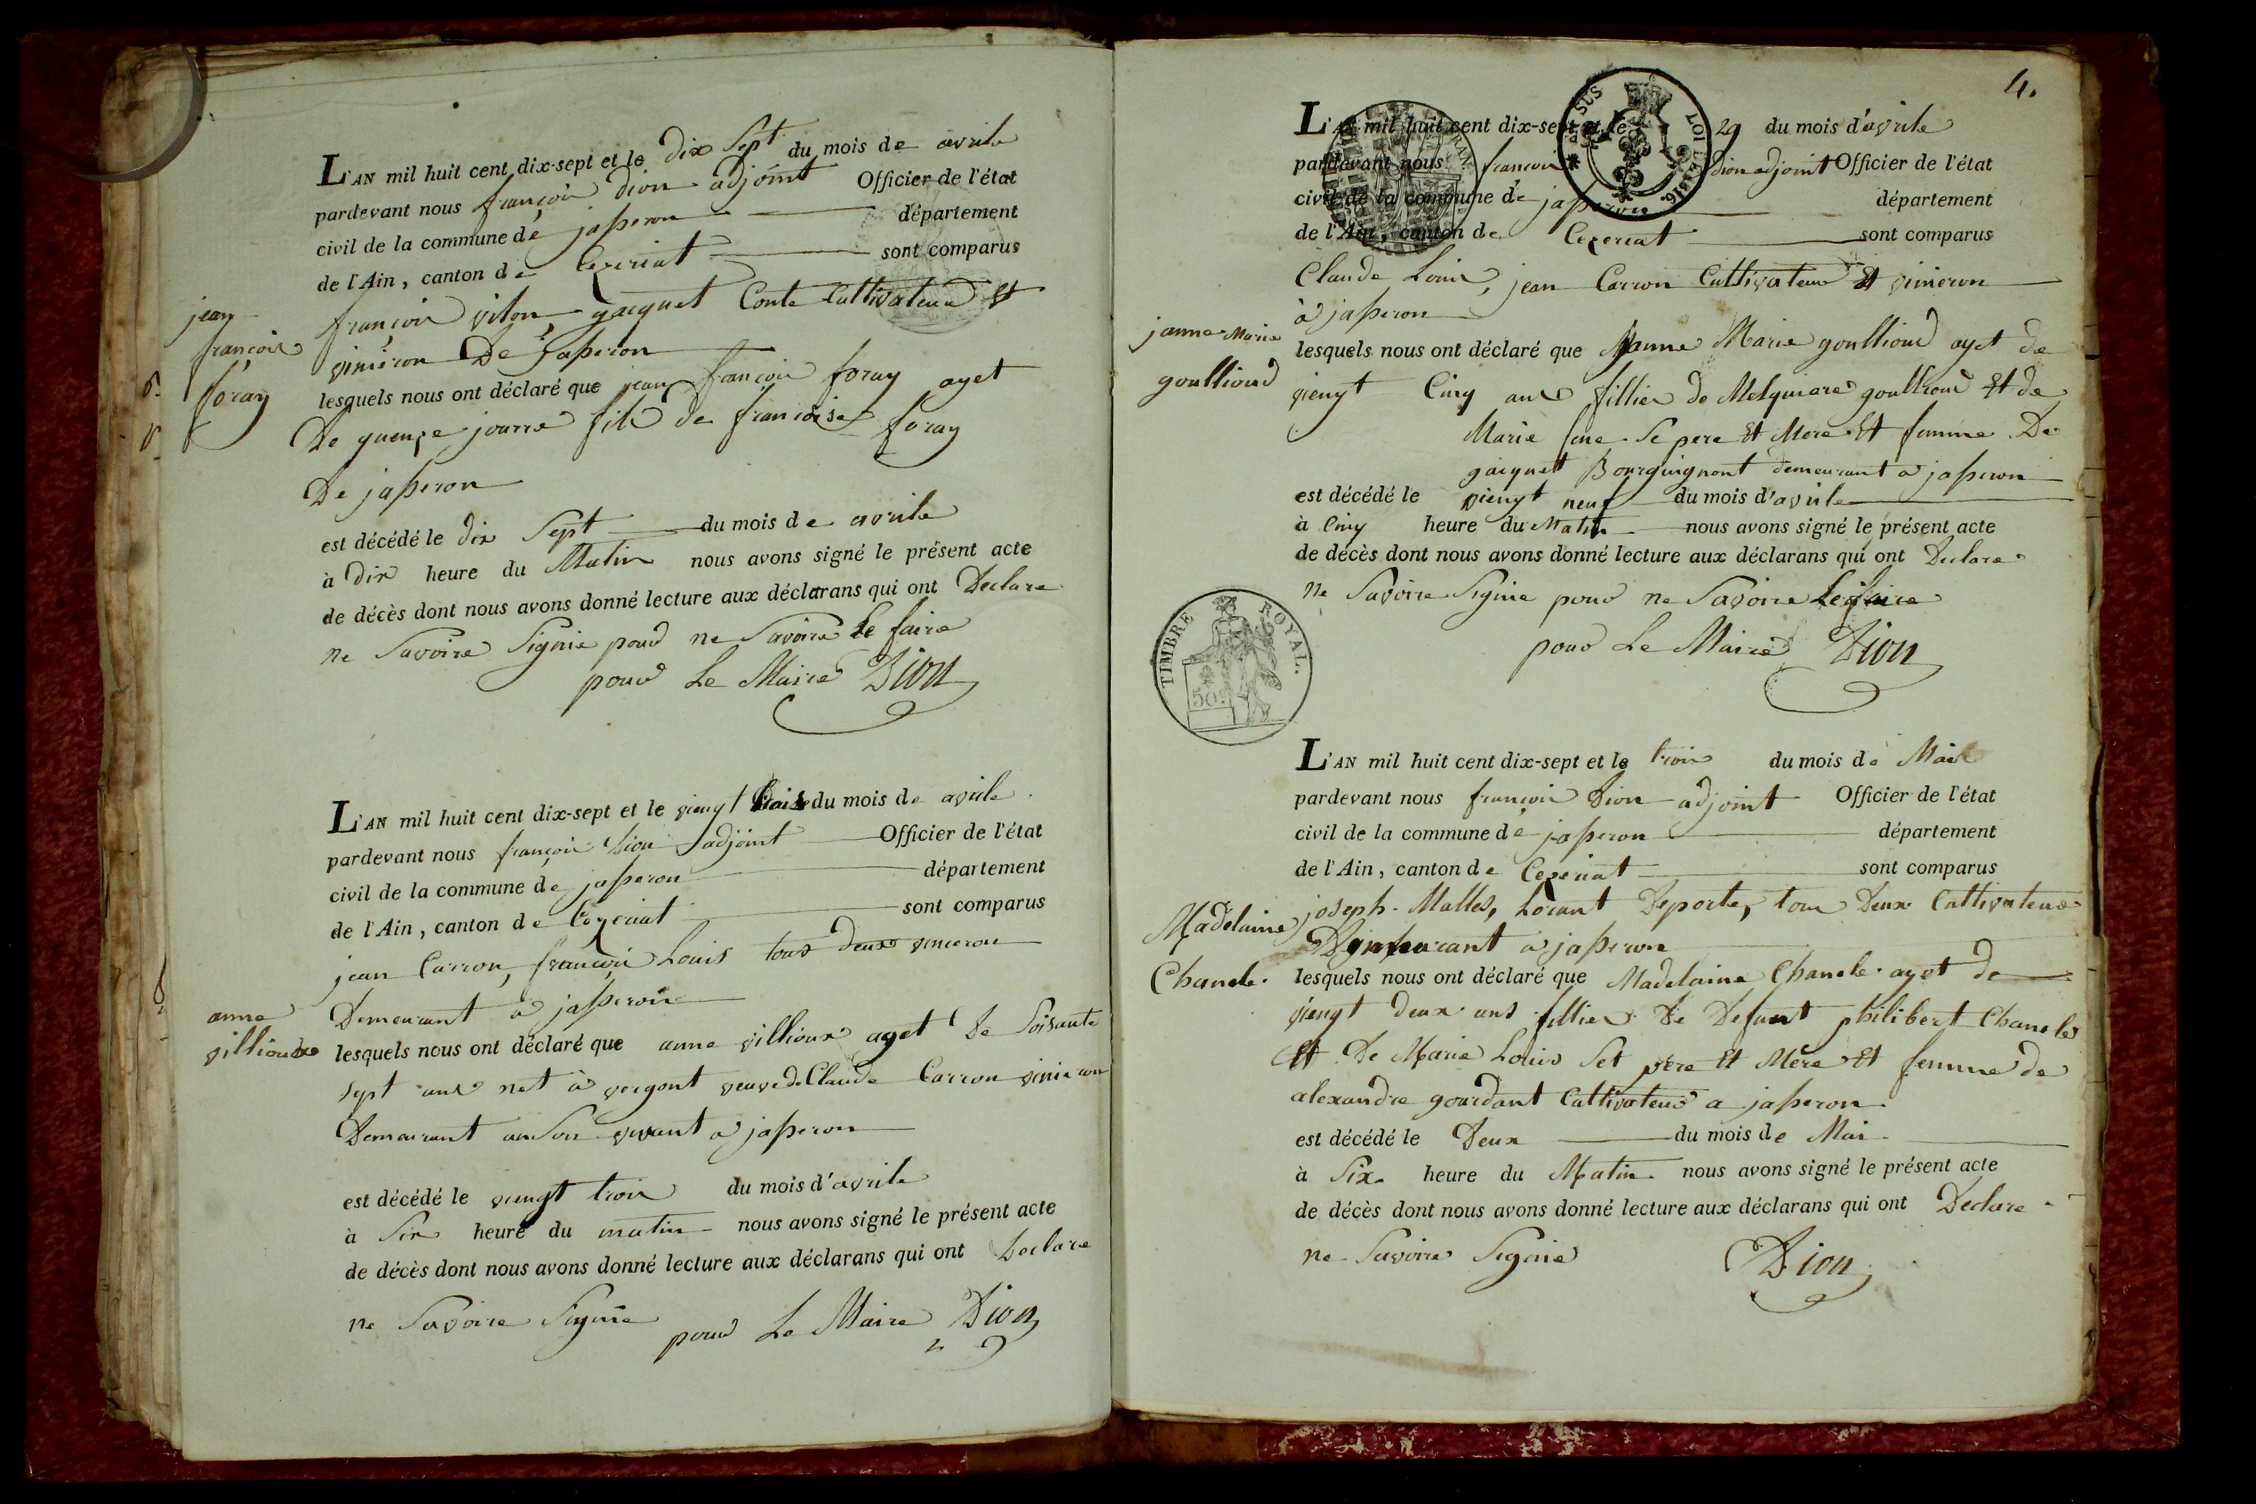 L'AN mil huit cent dix-sept et le dix Sept du mois de avrile
pardevant nous françoi dion adjoint Officier de l'état
civil de la commune dé jasseron département
de l'Ain, canton de Cezeriat sont comparus
françoi vilon, gacquet Conte Cultivateur Et
vinieron De jasseron
lesquels nous ont déclaré que jean françoi foray ayet
De quenze jourre fils de francoise foray
De jasseron
est décédé le dix Sept du mois de avrile
à dix heure du Matin nous avons signé le présent acte
de décès dont nous avons donné lecture aux déclarans qui ont Declare
ne Savoire Signie pour ne Savoire Le faire
pour Le Maire Dion
jean
françoi
foray
L'AN mil huit cent dix-sept et le viengt trois du mois de avrile
pardevant nous françoi Dion adjoint Officier de l'état
civil de la commune de jasseron département
de l'Ain, canton de Cezeriat sont comparus
jean Carron, françoi Louis tous deux vinieron
Demeurant a jasseron
lesquels nous ont déclaré que anne villioux ayet De Soisante
sept ans net à vergont veuve de Claude Carron vinieron
Demeurant anson vivant a jasseron
est décédé le viengt troi du mois d'avrile
à Six heure du matin nous avons signé le présent acte
de décès dont nous avons donné lecture aux déclarans qui ont Declare
ne Savoire Signie
pour Le Maire Dion
anne
villioux
4.
L'AN mil huit cent dix-sept et le 29 du mois d'avrile
pardevant nous françoi dion adjoint Officier de l'état
civil de la commune de jasseron département
de l'Ain, canton de Cezeriat sont comparus
Claude Louis, jean Carron Cultivateur Et vinieron
à jasseron
lesquels nous ont déclaré que janne Marie goullioud ayet de
viengt Cinq ans fillies de Melquiare goullioud Et de
Marie Se pere Et Mere Et femme De
gacquet Bourguignont demeurant a jasseron
est décédé le viengt neuf du mois d'avrile
à Cinq heure du Matin nous avons signé le présent acte
de décès dont nous avons donné lecture aux déclarans qui ont Declare
ne Savoire Signie pour ne Savoire Le faire
pour Le Maire Dion
janne Marie
goullioud
TIMBRE ROYAL.
50
L'AN mil huit cent dix-sept et le troi du mois de Mai
pardevant nous françoi Dion adjoint Officier de l'état
civil de la commune dé jasseron département
de l'Ain, canton de Cezeriat sont comparus
joseph Malles, Lorant Deporte, tous Deux Cultivateur
Demeurant à jasseron
lesquels nous ont déclaré que Madelaine Chanele ayet de
viengt deux ans fillies De Defunt philibert Chanele
Et De Marie Louis Set père Et Mère Et femme de
alexandre gourdant Cultivateur a jasseron
est décédé le Deux du mois de Mai
à Six heure du Matin nous avons signé le présent acte
de décès dont nous avons donné lecture aux déclarans qui ont Declare
ne Savoire Signie Dion
Madelaine
Chanele